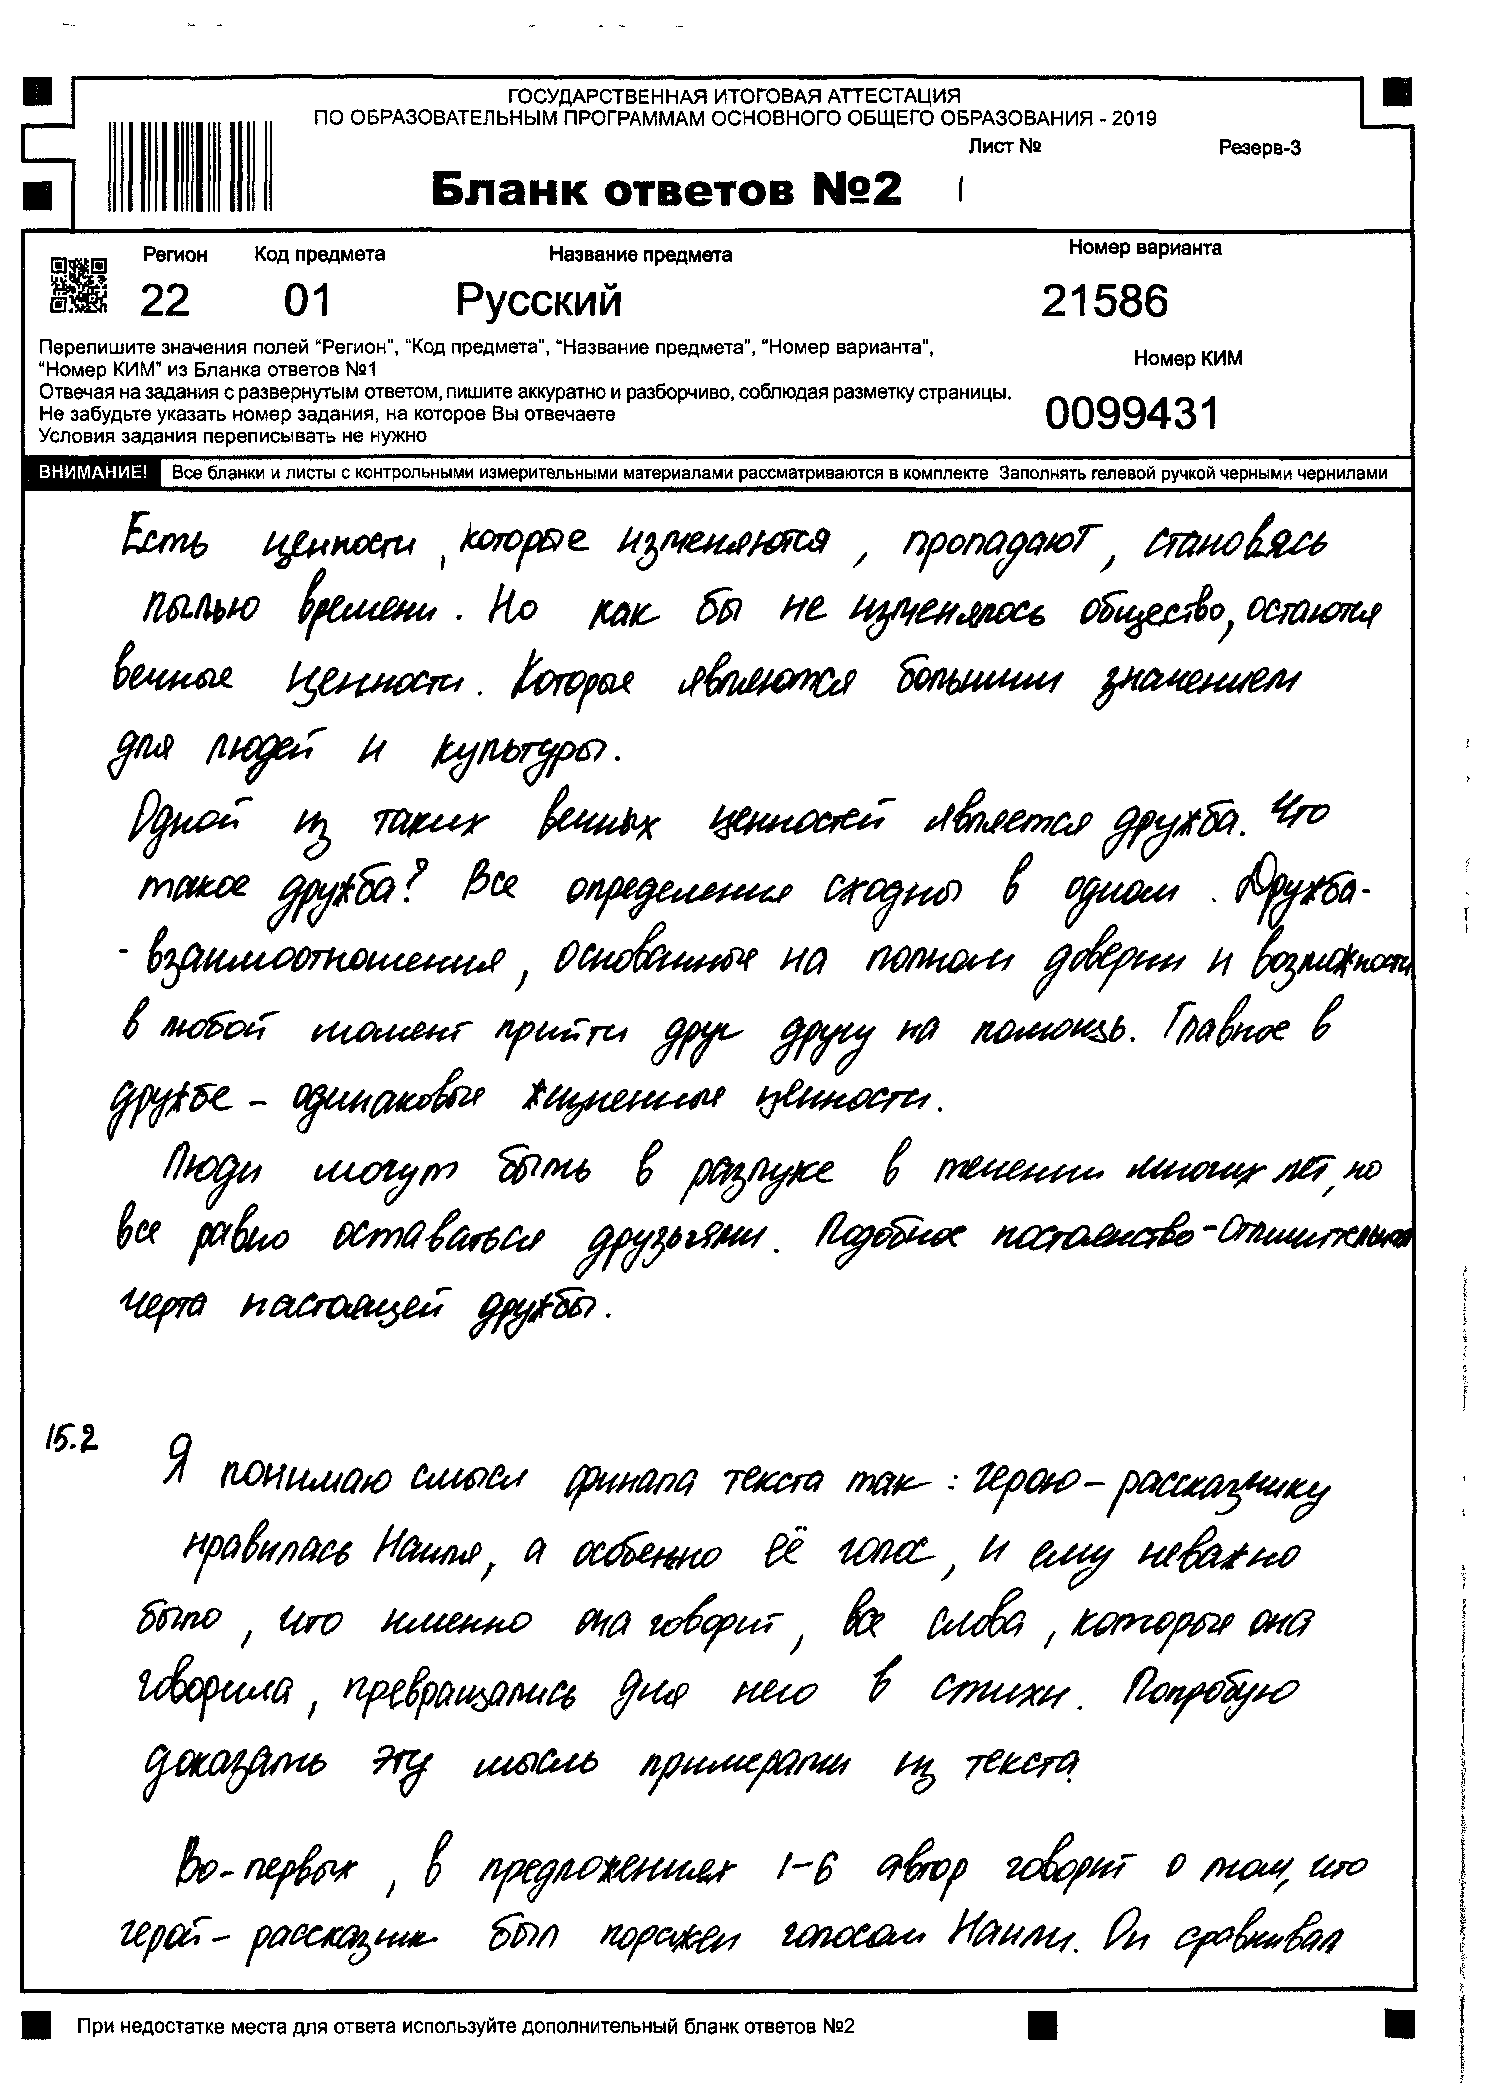 ГОСУДАРСТВЕННАЯ ИТОГОВАЯ АТТЕСТАЦИЯ
ПО ОБРАЗОВАТЕЛЬНЫМ ПРОГРАММАМ ОСНОВНОГО ОБЩЕГО ОБРАЗОВАНИЯ - 2019
Лист № Резерв-3
Бланк ответов №2 1
Регион Код предмета Название предмета Номер варианта
22 01 Русский 21586
Перепишите значения полей "Регион", "Код предмета", "Название предмета", "Номер варианта",
"Номер КИМ" из Бланка ответов №1
Номер КИМ
Отвечая на задания с развернутым ответом, пишите аккуратно и разборчиво, соблюдая разметку страницы.
Не забудьте указать номер задания, на которое Вы отвечаете
Условия задания переписывать не нужно
0099431
ВНИМАНИЕ! Все бланки и листы с контрольными измерительными материалами рассматриваются в комплекте Заполнять гелевой ручкой черными чернилами
Есть ценности, которые изменяются, пропадают, становясь
пылью времени. Но как бы не изменялось общество, остаются
вечные ценности. Которые являются большим значением
для людей и культуры.
Одной из таких вечных ценностей является дружба. Что
такое дружба? Все определения сходны в одном. Дружба-
- взаимоотношения, основанные на полном доверии и возможности
в любой момент прийти друг другу на помощь. Главное в
дружбе – одинаковые жизненные ценности.
Люди могут быть в разлуке в течении многих лет, но
все равно оставаться друзьями. Подобное постоянство - отличительная
черта настоящей дружбы.
15.2
Я понимаю смысл финала текста так: герою – рассказчику
нравилась Наиля, а особенно её голос, и ему неважно
было, что именно она говорит, все слова, которые она
говорила, превращались для него в стихи. Попробую
доказать эту мысль примерами из текста.
Во-первых, в предложениях 1-6 автор говорит о том, что
герой – рассказчик был поражен голосом Наили. Он сравнивал
При недостатке места для ответа используйте дополнительный бланк ответов №2